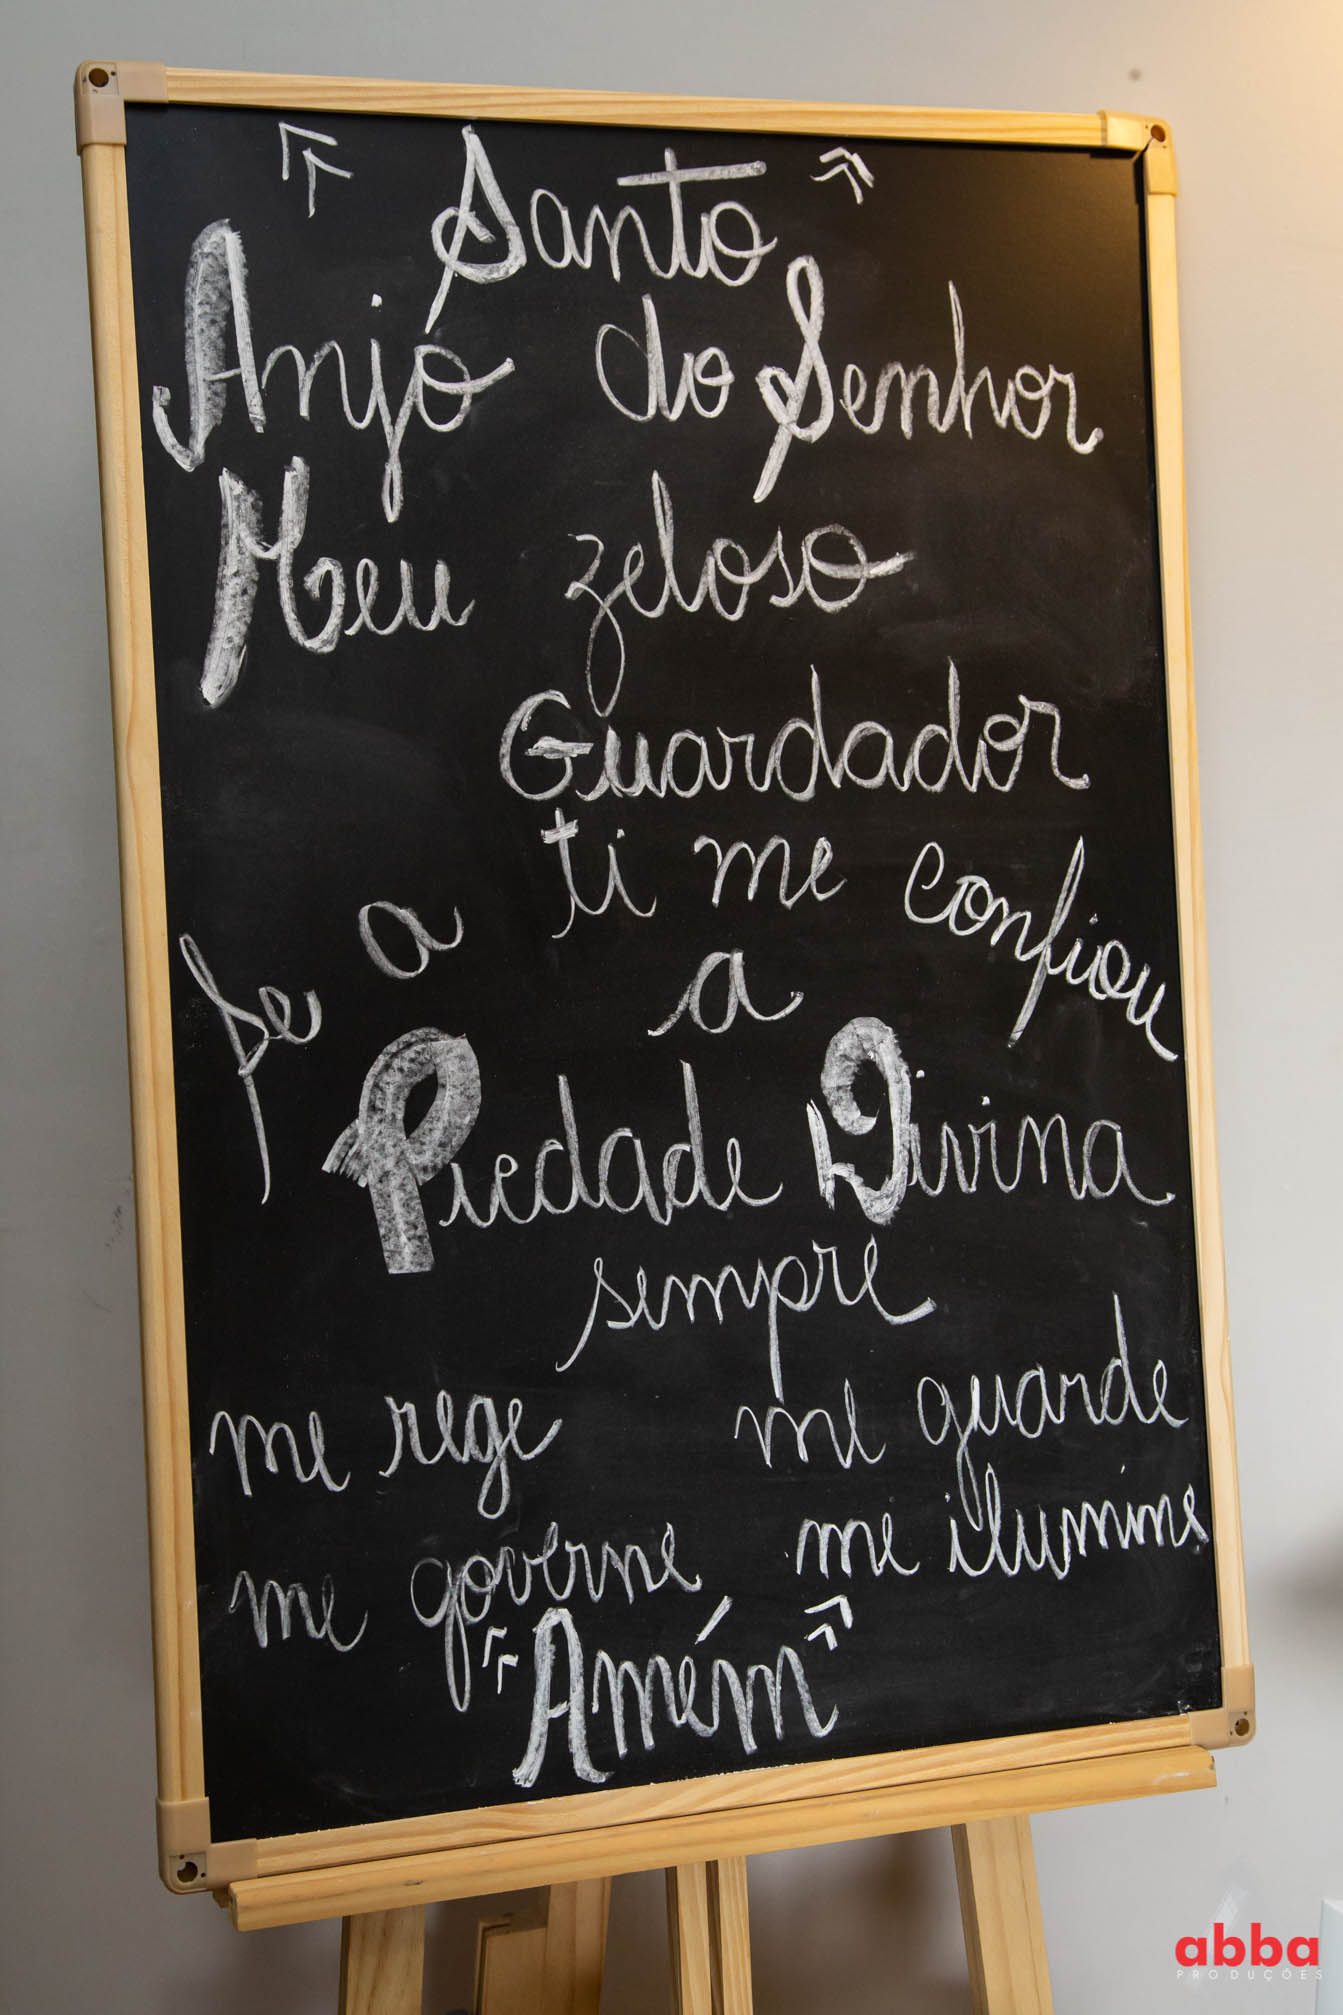 "Santo"
Anjo do Senhor
Meu zeloso
Guardador
Se a ti me confiou
a
Piedade Divina
sempre
me rege me guarde
me governe me ilumine
"Amém"
abba
PRODUÇÕES